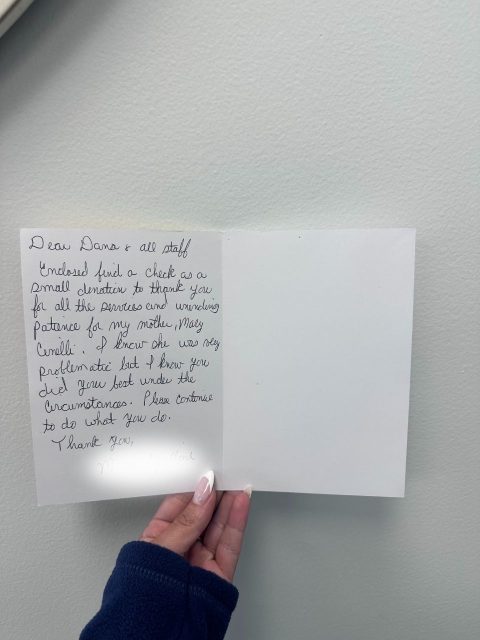 Dear Dana & all staff
Enclosed find a check as a
small donation to thank you
for all the services and unending
patience for my mother, Mary
Cinelli. I know she was very
problematic but I know you
did your best under the
circumstances. Please continue
to do what you do.
Thank you,